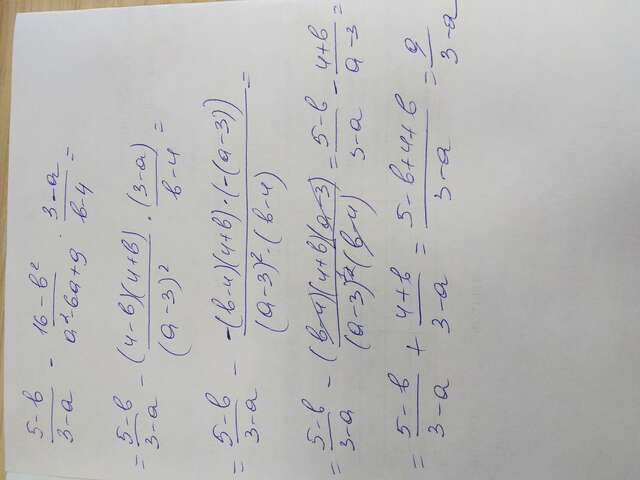 (5-b)/(3-a) - (16-b²)/(a²-6a+9) · (3-a)/(b-4) =
= (5-b)/(3-a) - ((4-b)(4+b))/((a-3)²) · (3-a)/(b-4) =
= (5-b)/(3-a) - (-(b-4)(4+b)·(-(a-3)))/((a-3)²·(b-4)) =
= (5-b)/(3-a) - ((b-4)(4+b)(a-3))/((a-3)²(b-4)) = (5-b)/(3-a) - (4+b)/(a-3) =
= (5-b)/(3-a) + (4+b)/(3-a) = (5-b+4+b)/(3-a) = 9/(3-a)